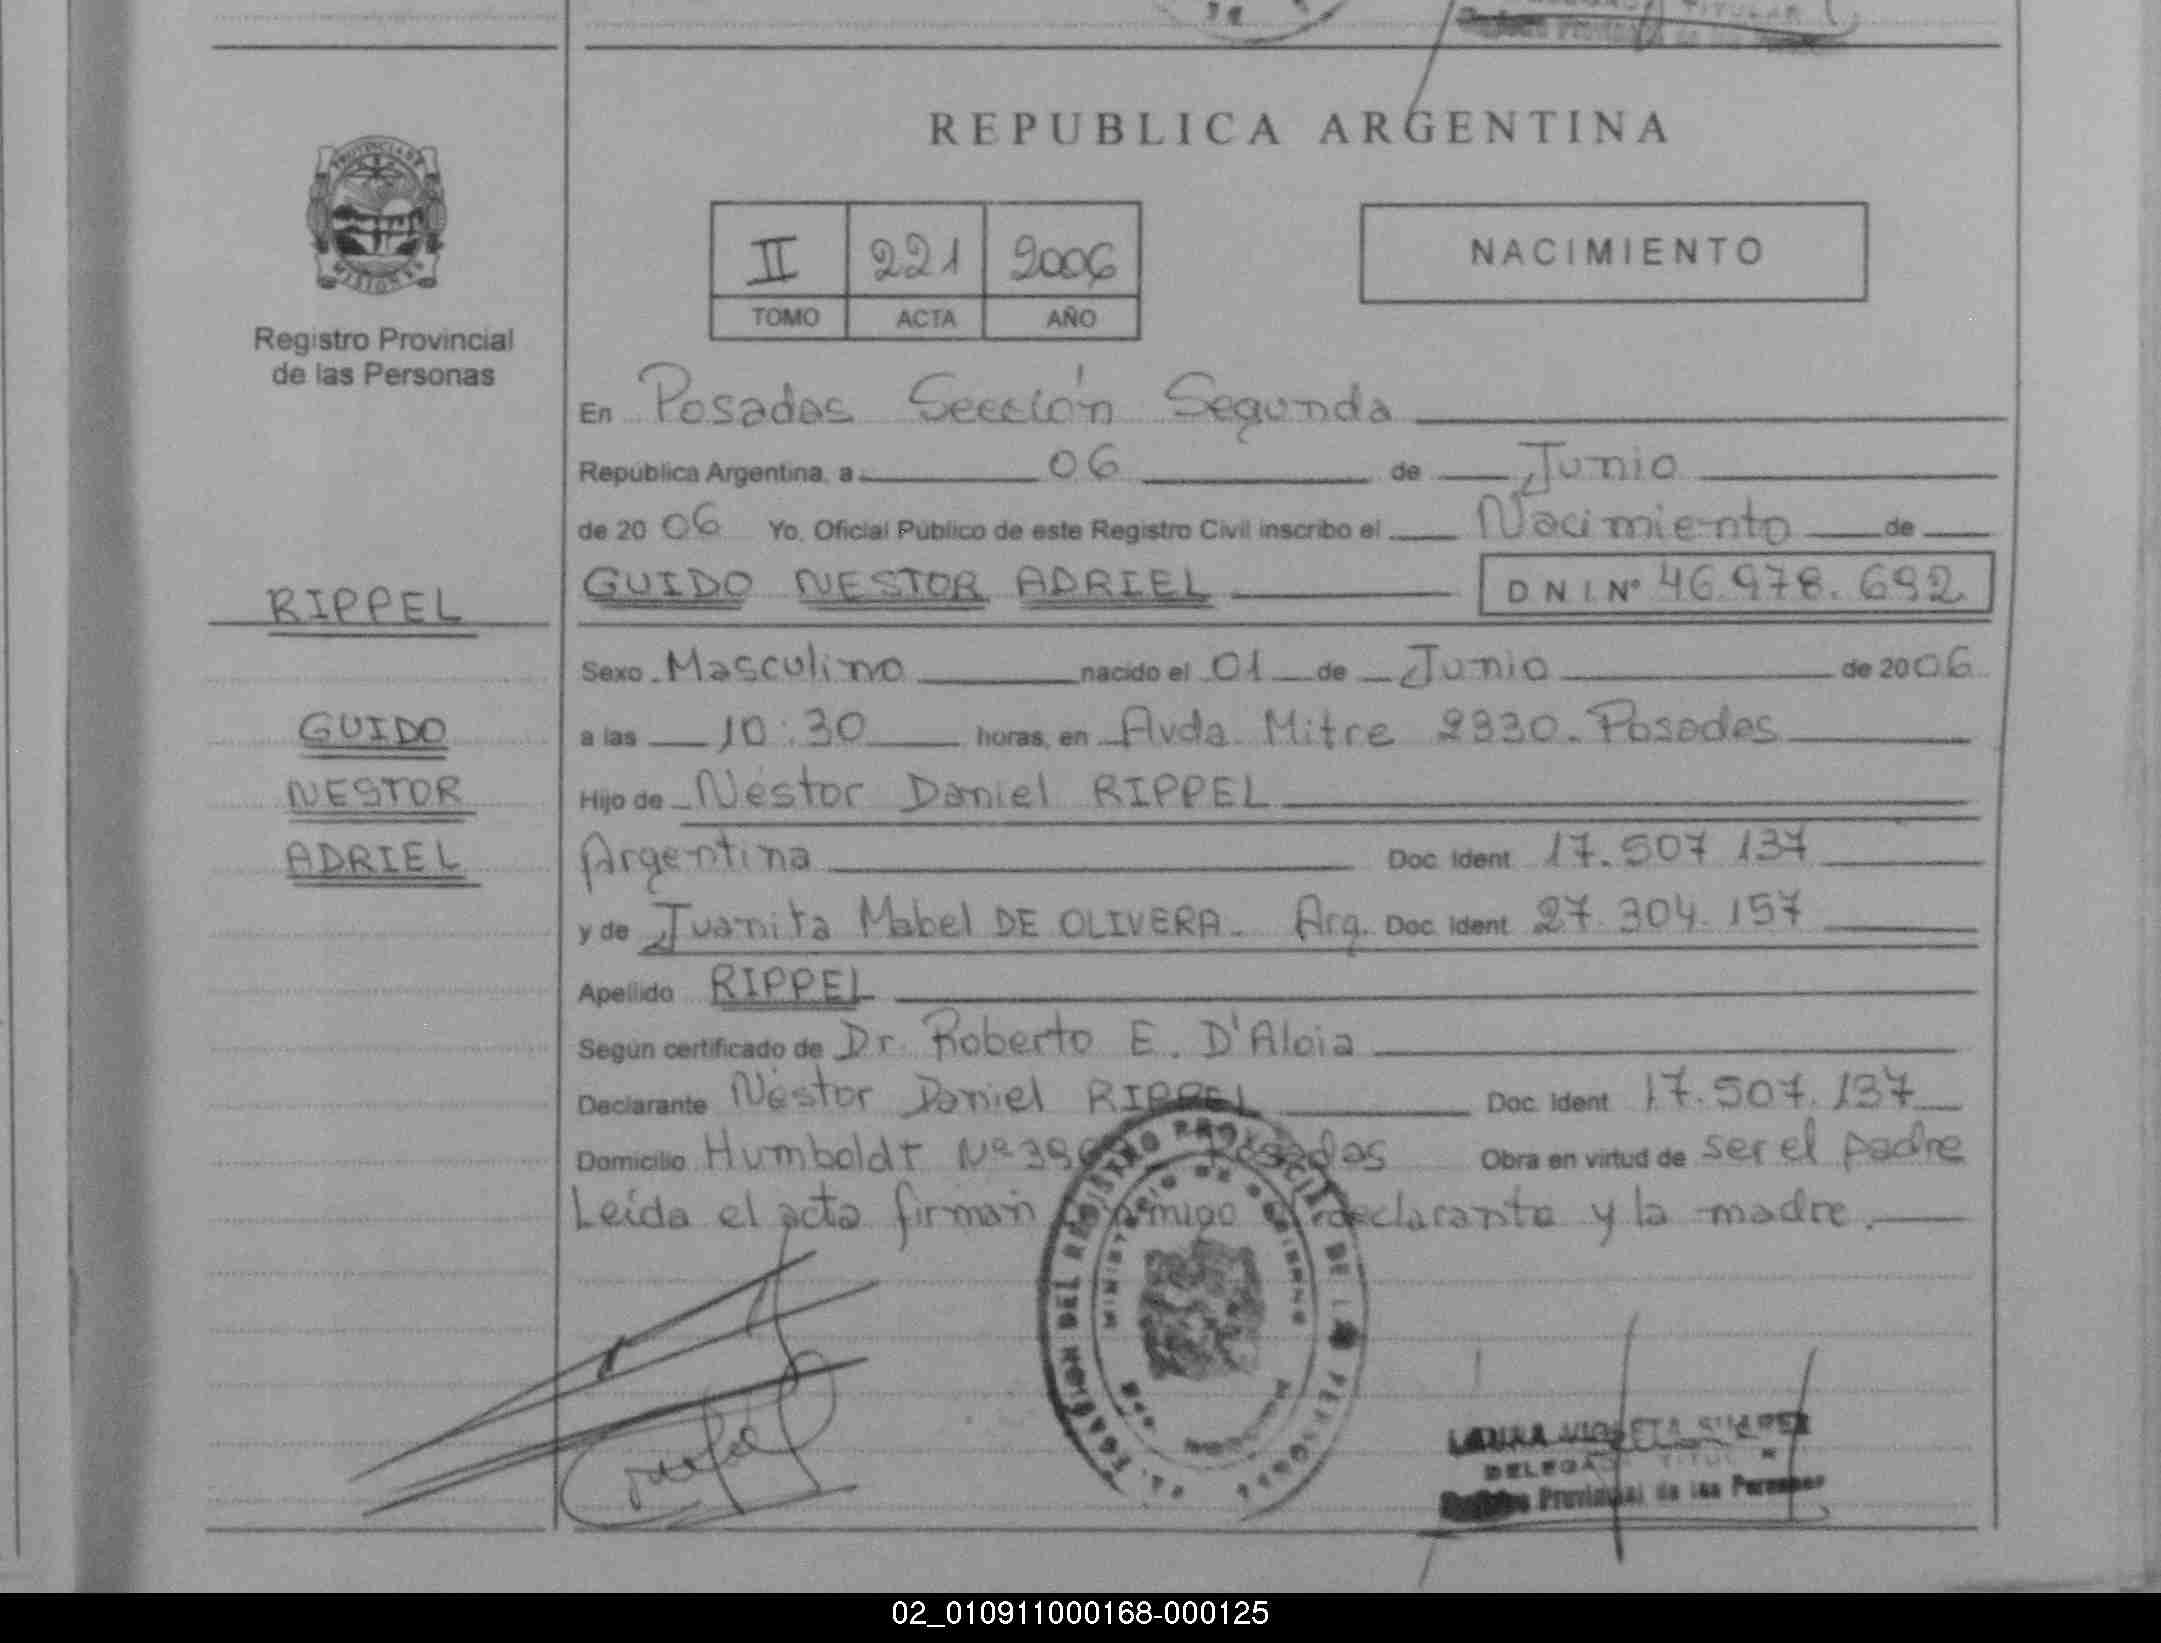 REPUBLICA ARGENTINA
PROVINCIA DE
MISIONES
Registro Provincial
de las Personas
II 221 2006
TOMO ACTA AÑO
NACIMIENTO
En Posadas Sección Segunda
República Argentina, a 06 de Junio
de 2006 Yo, Oficial Público de este Registro Civil inscribo el Nacimiento de
RIPPEL
GUIDO NESTOR ADRIEL DNI.Nº 46.978.692
Sexo Masculino nacido el 01 de Junio de 2006
GUIDO
a las 10:30 horas, en Avda. Mitre 2330. Posadas
NESTOR
Hijo de Néstor Daniel RIPPEL
ADRIEL
Argentina Doc. Ident 17.507.137
y de Juanita Mabel DE OLIVERA. Arg. Doc. Ident 27.304.157
Apellido RIPPEL
Según certificado de Dr. Roberto E. D'Aloia
Declarante Néstor Daniel RIPPEL Doc. Ident 17.507.137
Domicilio Humboldt Nº Posadas Obra en virtud de ser el padre
Leída el acta firman conmigo el declarante y la madre.
DELEGACION DEL REGISTRO PROVINCIAL DE LAS PERSONAS
MINISTERIO DE GOBIERNO
LAURA VIOLETA SUAREZ
DELEGADA TITULAR
Registro Provincial de las Personas
02_010911000168-000125